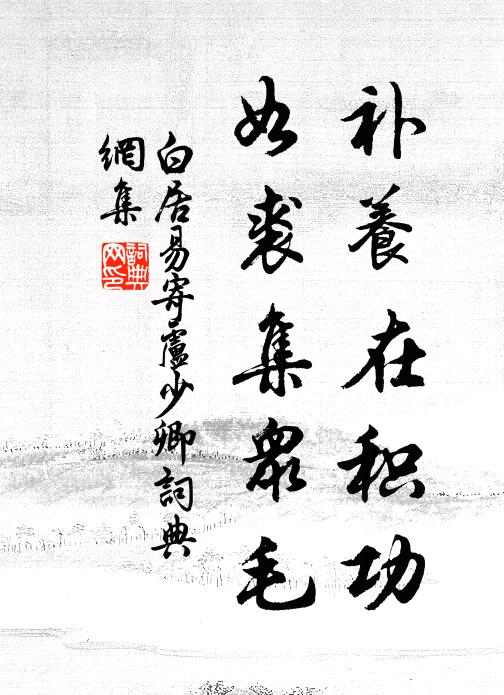 补養在积功
如裘集眾毛
白居易寄盧少卿詞典
網集
詞典
网印